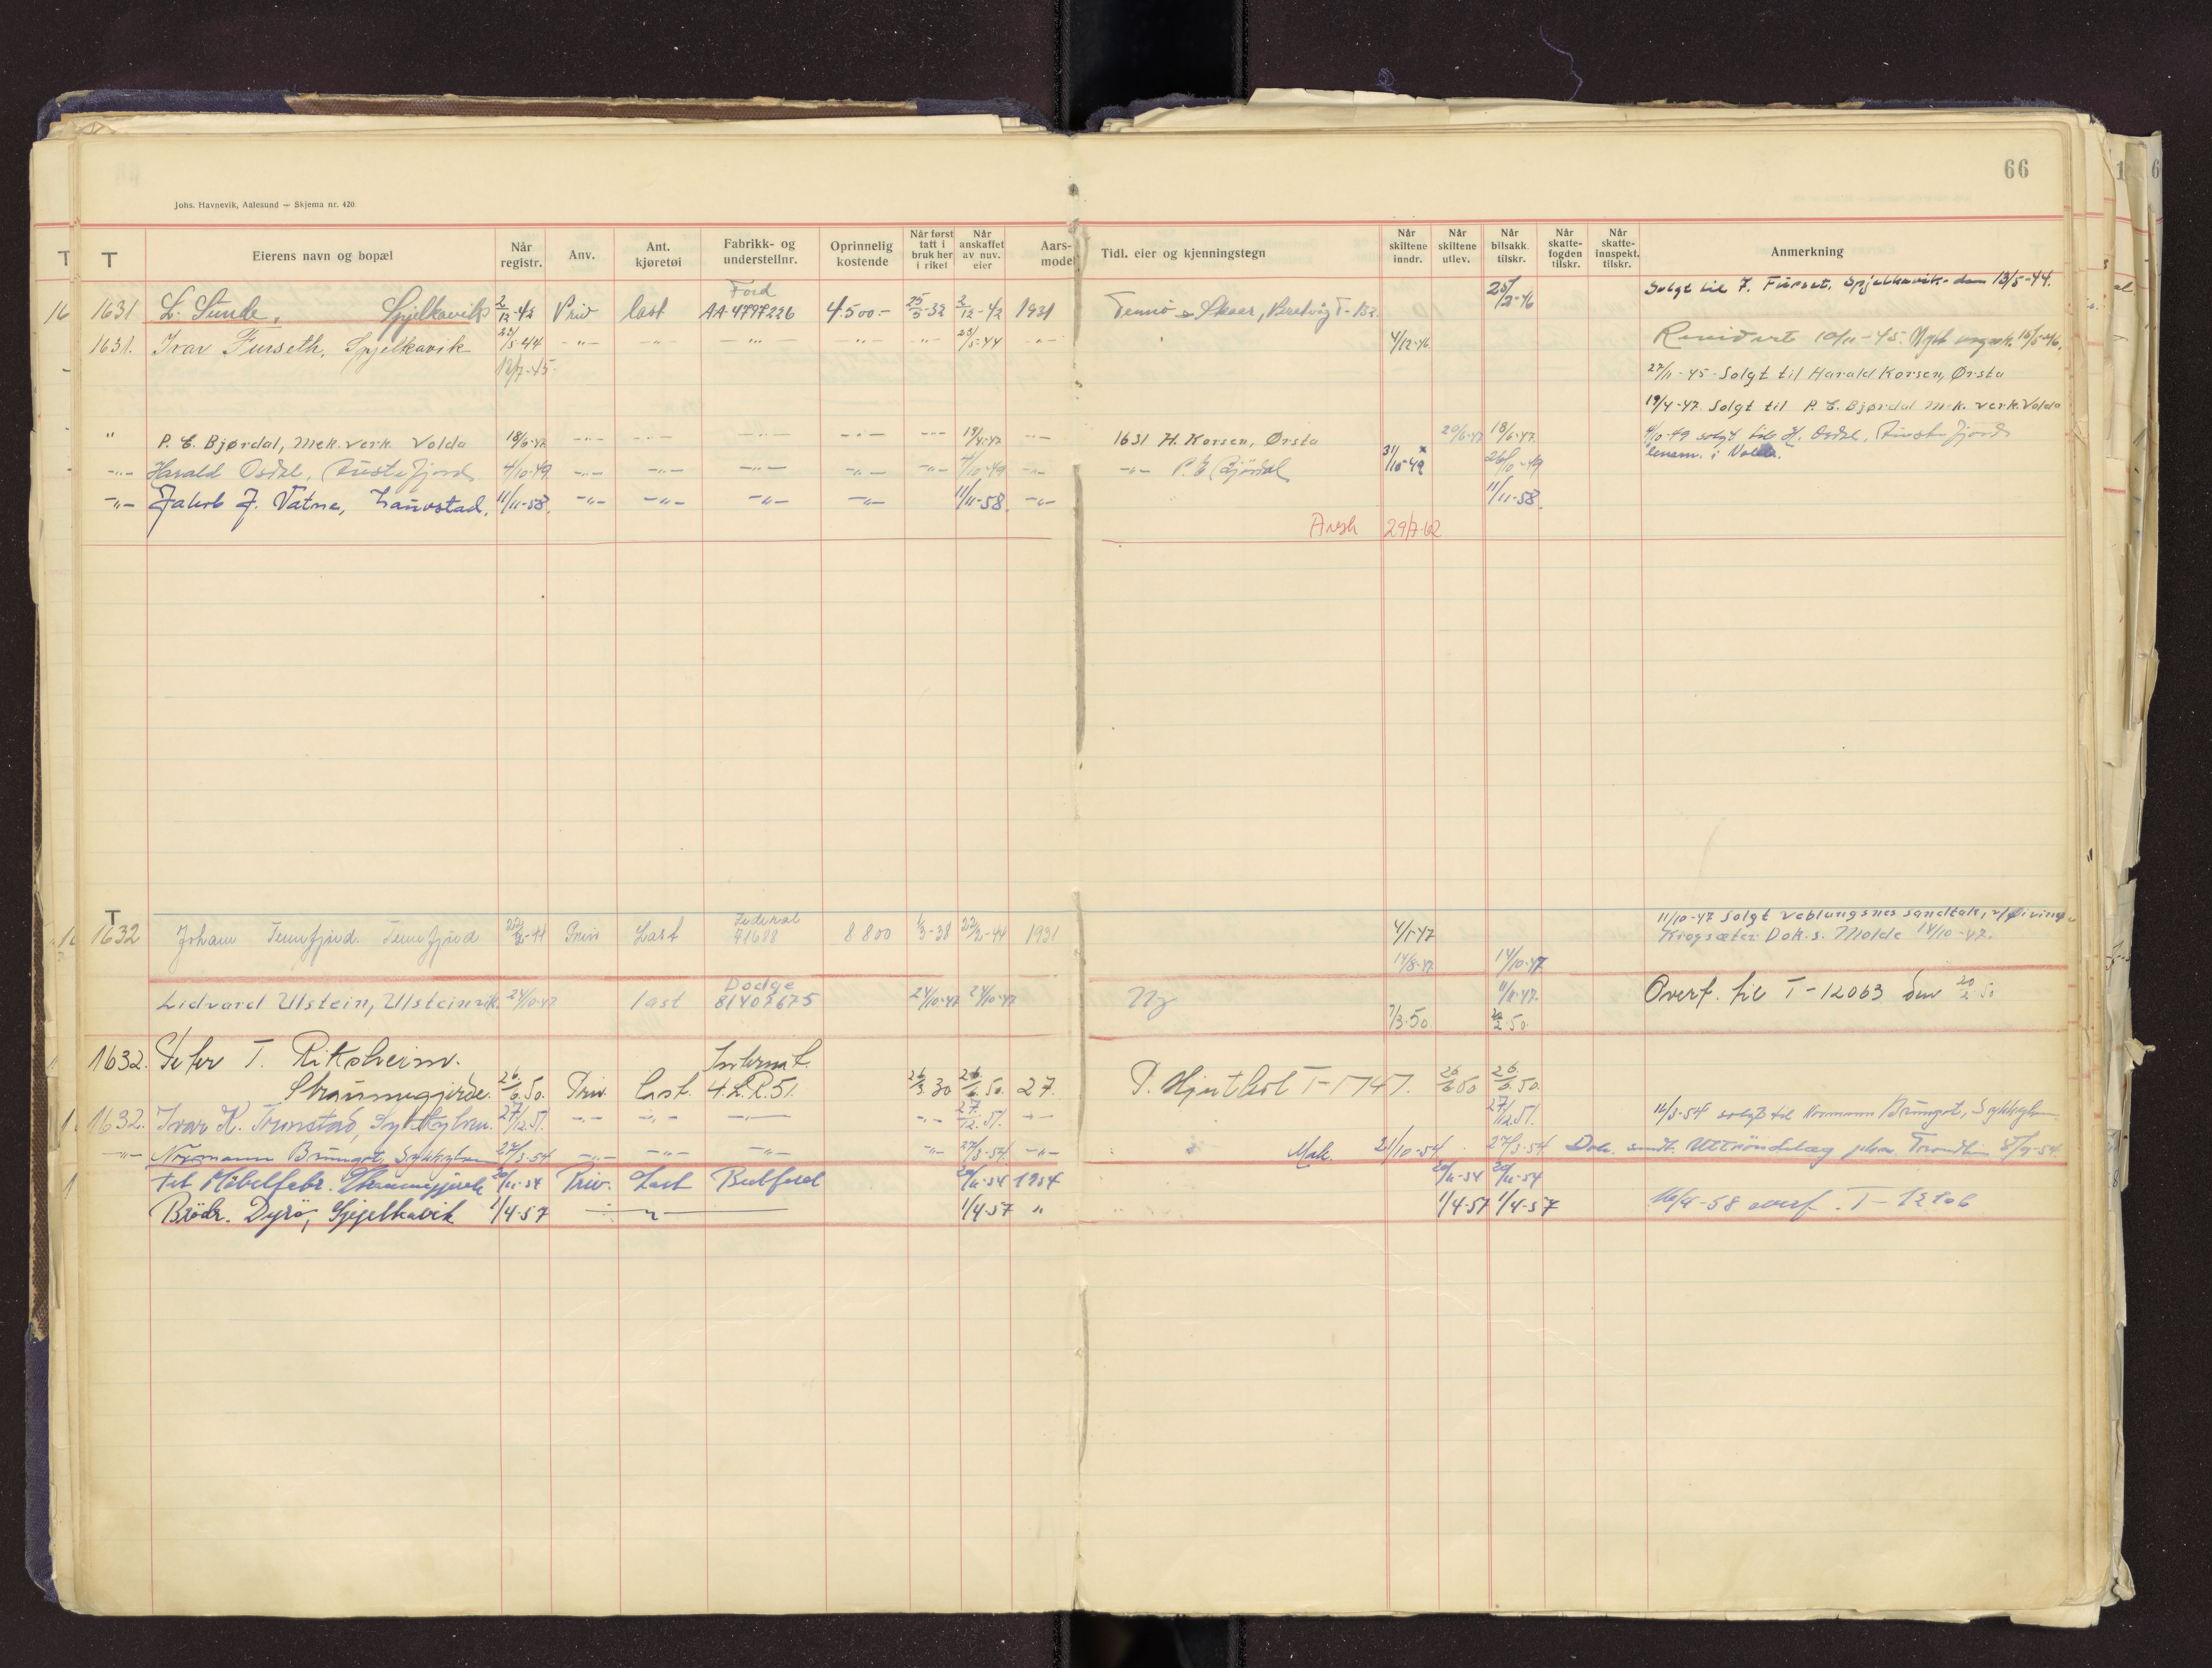 66
Johs. Havnevik, Aalesund — Skjema nr. 420
T T Eierens navn og bopæl Når registr. Anv. Ant. kjøretøi Fabrikk- og understellnr. Oprinnelig kostende Når først tatt i bruk her i riket Når anskaffet av nuv. eier Aars-model Tidl. eier og kjenningstegn Når skiltene inndr. Når skiltene utlev. Når bilsakk. tilskr. Når skatte-fogden tilskr. Når skatte-innspekt. tilskr. Anmerkning
Solgt til I. Fürset, Spjelkavik den 13/5-44.
16 1631 L. Sunde, Spjelkavik 2/12-42 Priv last Ford AA 4797226 4.500.- 25/5-32 2/12-42 1931 25/2-46
1631. Ivar Furseth, Spjelkavik 23/5-44 -"- -"- -"- -"- -"- 23/5-44 -"- 4/12-46 Revidert 10/11-45.
12/7-45 27/11-45 Solgt til Harald Korsen, Ørsta
19/4-47 Solgt til P. E. Bjørdal Mek. verk. Volda
" P. E. Bjørdal, Mek. verk. Volda 18/6-47 -"- -"- -"- -"- -"- 19/4-47 -"- 1631 H. Korsen, Ørsta 20/6-47 18/6-47 4/10-49 solgt til H. Osdal, Austefjord
-"- Harald Osdal, Austefjord 4/10-49 -"- -"- -"- -"- -"- 4/10-49 -"- -"- P. E. Bjørdal 31/10-49 26/10-49 lensm. i Volda.
-"- Jakob J. Vatne, Lauvstad, 11/11-58. -"- -"- -"- -"- 11/11-58. -"- 11/11-58.
Avsk 29/7-62
T 11/10-47 Solgt Veblungsnes sandtak, v/Øivind
1632 Johan Tennfjord. Tennfjord 22/2-44 Priv Last Federal 71688 8800 1/3-38 22/2-44 1931 4/1-47 Krogsæter Dok. s. Molde 14/10-47.
14/8-47 14/10-47
Lidvard Ulstein, Ulsteinvik. 24/10-47 last Dodge 81407675 24/10-47 24/10-47 Ny 11/11-47. Overf. til T-12063 den 20/2 50
7/3-50 20/2-50
1632. Peter T. Riksheim. Internat.
Straumgjerde. 26/6.50. Priv. Last. 4.L.R.51. 26/3.30 26/6.50. 27. P. Hjorthol T-1747. 26/6 50 26/6.50.
1632. Ivar K. Tronstad, Sykkylven. 27/12.51. -"- -"- -"- -"- 27/12.51. -"- 27/12.51. 16/3-54 solgt til Normann Brunget, Sykkylven
-"- Normann Brunget, Sykkylven 27/3-54 -"- -"- -"- -"- 27/3-54. -"- Mak. 21/10-54 27/3-54. Dok. sendt
Møbelfabr. Straumgjerde 20/11-54 Priv. Last Bedford 20/11-54 1954 20/11-54 20/11-54
Brødr. Dyrø, Spjelkavik 1/4-57 -"- 1/4-57 " 1/4-57 1/4-57 16/4-58 overf. T-12106